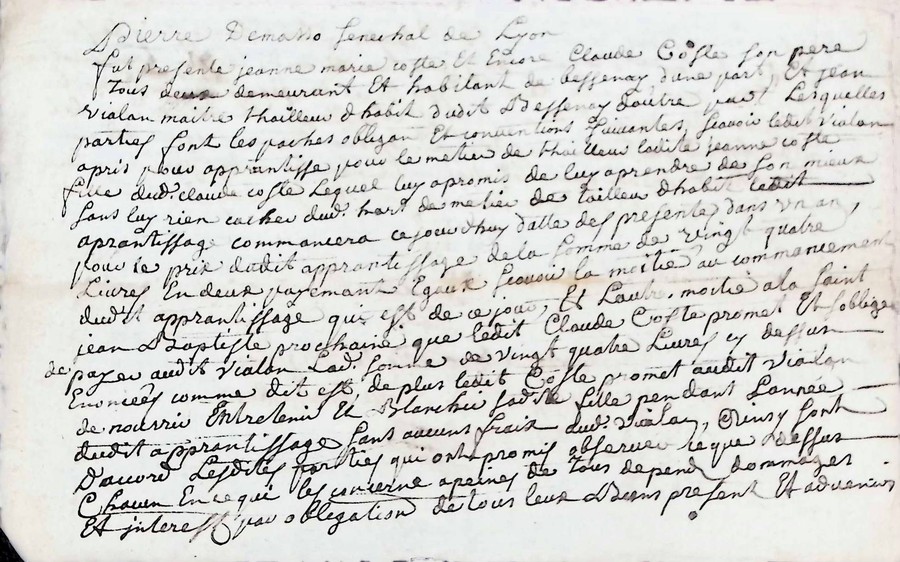 Pierre Demasso senechal de Lyon
fut presente jeanne marie coste Et Encore Claude Coste son pere
Tous deux demeurant Et habitant de bessenay d'une part, Et jean
vialan maitre thailleur dhabit dudit Bessenay dautre part Lesquelles
parties font les paches obligaon Et conventions suivantes, scavoir ledit vialan
apris pour apprantisse pour le metier de thailleur ladite jeanne coste
fille dud. claude coste Lequel luy apromis de luy aprendre de son mieux
sans luy rien cacher dud. hart de metier de tailleur dhabit ledit
aprantissage commancera cejourdhuy datte des presente dans un an,
pour le prix dudit apprantissage de la somme de vingt quatre
Livres En deux payemant Egaux scavoir la moitie au commancement
dudit apprantissage qui est de ce jour, Et Lautre moitie a la saint
jean Baptiste prochaine que ledit Claude Coste promet Et soblige
de payer audit vialan Lad. somme de vingt quatre Livres cy dessus
Enoncées comme dit est, de plus ledit Coste promet audit vialan
de nourrir Entretenir Et Blanchir sadite fille pendant Lannee
dudit apprantissage sans aucuns frais dud. vialan, Ainsy sont
D'accord Lesdites parties qui ont promis observer ce que dessus
Chacun En ce qui les concerne apeines de tous depend dommages
Et interest par obligation de tous leux Biens present Et advenirs